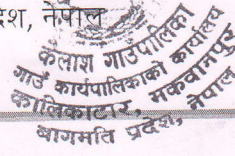 देश, नेपाल
कैलाश गाउँपालिका
गाउँ कार्यपालिकाको कार्यालय
कालिकाटार, मकवानपुर
बागमति प्रदेश, नेपाल